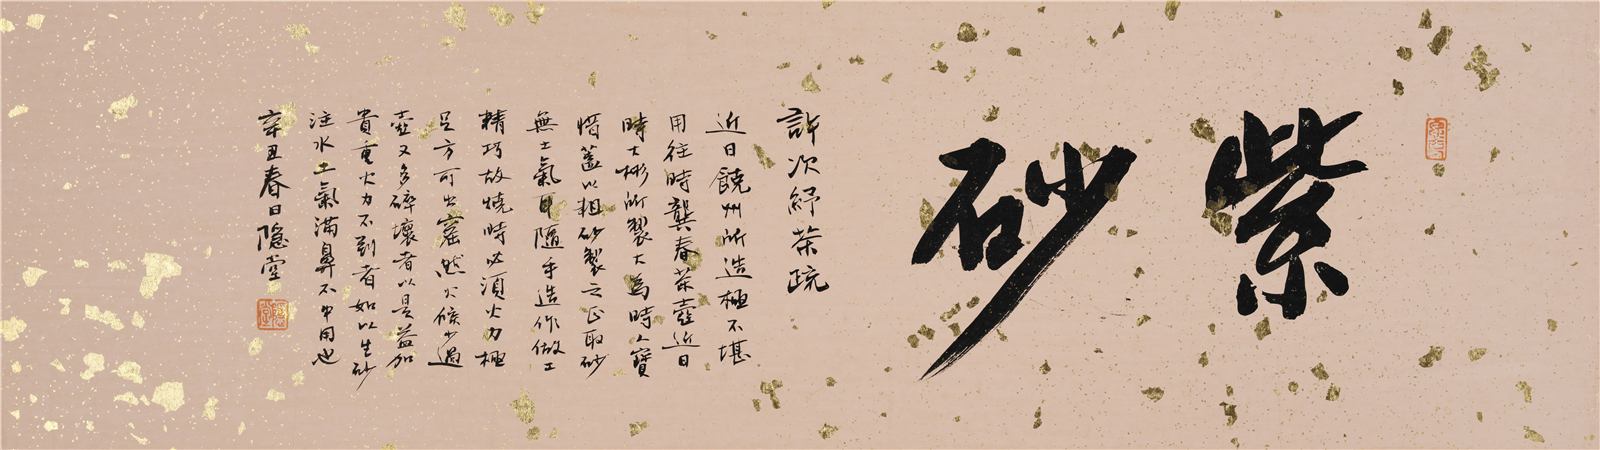 紫砂
許次紓茶疏
近日饒州所造極不堪
用往時龔春茶壺近日
時大彬所製大為時人寶
惜蓋以粗砂製之正取砂
無土氣耳隨手造作做工
精巧故燒時必須火力極
足方可出窰然火候少過
壺又多碎壞者以是益加
貴重火力不到者如以生砂
注水土氣滿鼻不中用也
辛丑春日隐堂
隱堂